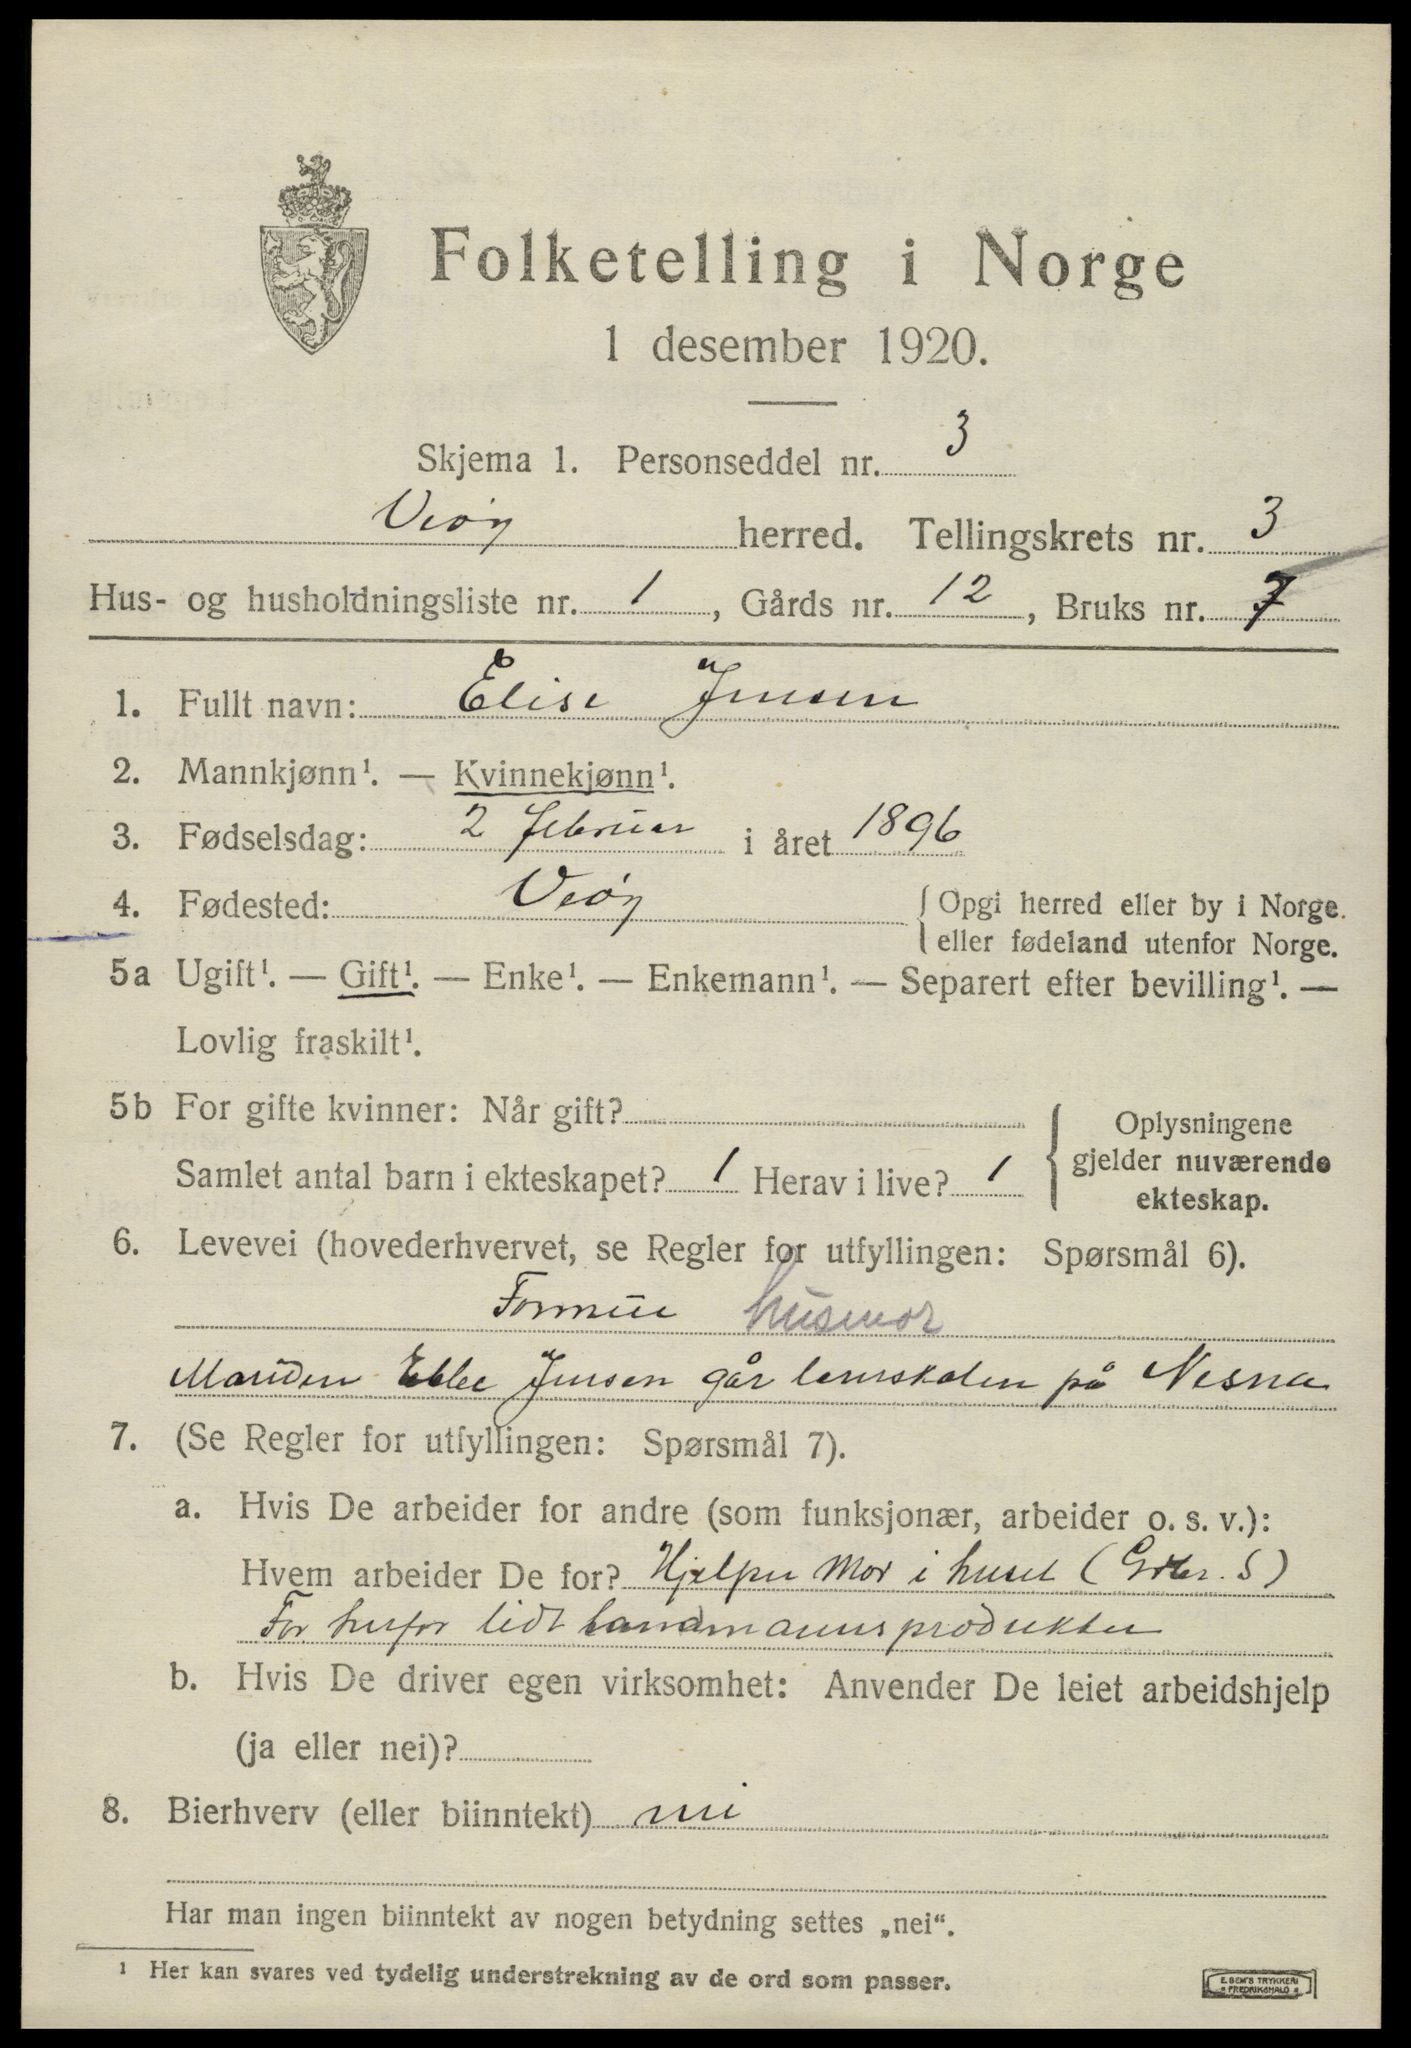 Folketelling i Norge
1 desember 1920.
Skjema 1. Personseddel nr. 3
Veöy herred. Tellingskrets nr. 3
Hus- og husholdningsliste nr. 1, Gårds nr. 12, Bruks nr. 7
1. Fullt navn: Elise Jensen
2. Mannkjønn¹. — Kvinnekjønn¹.
3. Fødselsdag: 2 februar i året 1896
4. Fødested: Veöy { Opgi herred eller by i Norge.
eller fødeland utenfor Norge.
5a Ugift¹. — Gift¹. — Enke¹. — Enkemann¹. — Separert efter bevilling¹. —
Lovlig fraskilt¹.
5b For gifte kvinner: Når gift?
Samlet antal barn i ekteskapet? 1 Herav i live? 1
Oplysningene
gjelder nuværende
ekteskap.
6. Levevei (hovederhvervet, se Regler for utfyllingen: Spørsmål 6).
husmor
Manden Jensen går lærerskolen på Nesna
7. (Se Regler for utfyllingen: Spørsmål 7).
a. Hvis De arbeider for andre (som funksjonær, arbeider o. s. v.):
Hvem arbeider De for? Hjelper Mor i huset (Gdbr. S)
For lidt landmannsprodukter
b. Hvis De driver egen virksomhet: Anvender De leiet arbeidshjelp
(ja eller nei)?
8. Bierhverv (eller biinntekt) nei
Har man ingen biinntekt av nogen betydning settes „nei“.
¹ Her kan svares ved tydelig understrekning av de ord som passer.
E. SEM'S TRYKKERI
FREDRIKSHALD